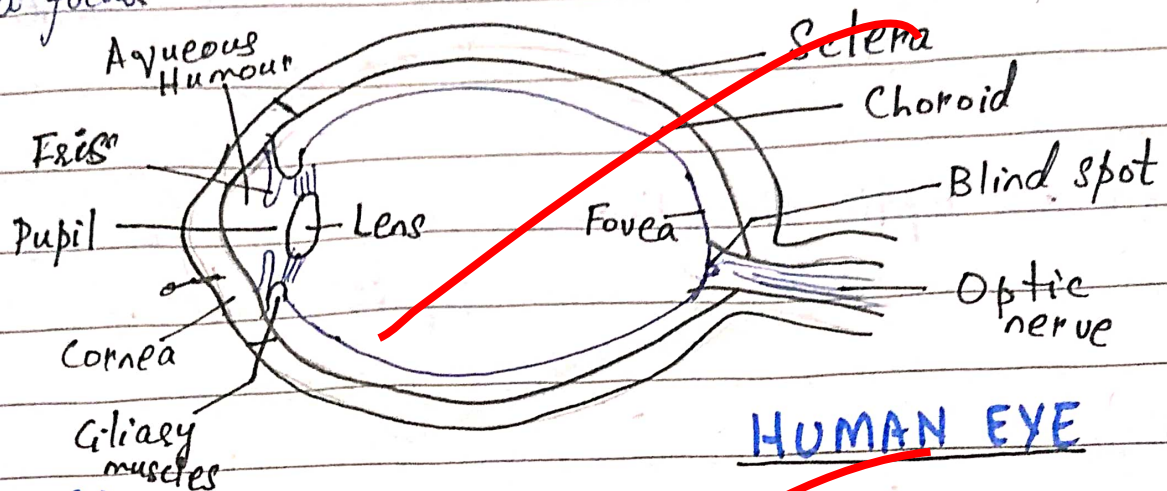 focus
Aqueous
Humour
Iris
Pupil
Cornea
Ciliary
muscles
Lens
Fovea
Sclera
Choroid
Blind spot
Optic
nerve
HUMAN EYE